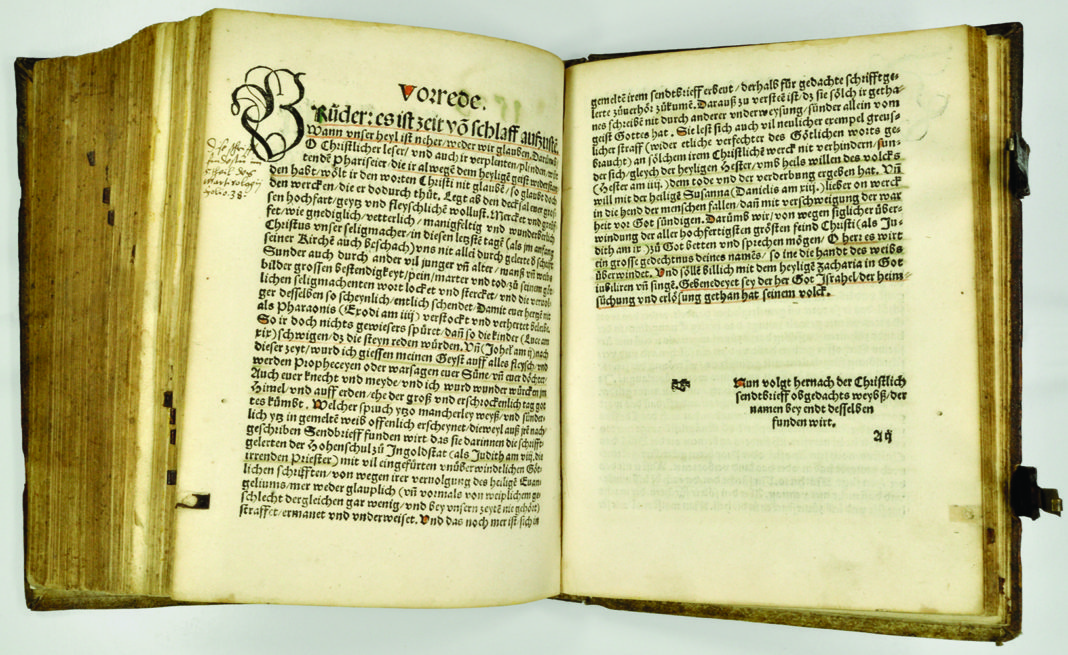 Vorrede.
Rüder: es ist zeit vō schlaff auffzustē
Wann vnser heyl ist neher / weder wir glauben. Darumb
O Christlicher leser / vnd auch ir verplenten / plinden /
tendē Phariseier / die ir al wegē dem heyligē geist widerstan
den habt / wölt ir den worten Christi nit glaubē / so glaubt doch
den wercken / die er dodurch thūt. Legt ab den decksal ewer gros
sen hochfart / geytz vnd fleyschliche wollust. Mercket vnd
fet / wie gnediglich / vetterlich / manigfeltig vnd wunderbarlich
Christus vnser seligmacher / in diesen letzstē tagē (als jm anfang
seiner Kirchē auch beschach) vns nit allei durch gelerte
Sunder auch durch ander vil junger vn̄ alter / vn̄ weibs
bilder grossen bestendigkeyt / pein / marter vnd tod / zū seinem göt
lichen seligmachenten wort locket vnd stercket / vnd die vervol
ger desselben so scheynlich / entlich schendet / Damit ewr hertzē nit
als Pharaonis (Exodi am iiij) verstockt vnd verhertet beleibe.
So ir doch nichts gewiesers spüret / dan̄ so die kinder (Luce am
xix) schwigen / dz die steyn reden würden. Vn̄ (Johel am ij) nach
dieser zeyt / wurd ich giessen meinen Geyst auff alles fleysch / vnd
werden Propheceyen oder warsagen ewr Süne / vn̄ ewr döchter /
Auch ewr knecht vnd meyde / vnd ich wurd wunder würcken jm
Himel / vnd auff erden / ehe der groß vnd erschrockenlich tag got
tes kümbt. Welcher spruch ytzo mancherley weyß / vnd sunder
lich ytz in gemeltē weib offenlich erscheynet / dieweyl auß jrē nach
geschriben Sendbrieff funden wirt das sie darinnen die schrifft
gelerten der Hohenschul zū Ingoldstat (als Judith am viij. die
irrenden Priester) mit vil eingefürten vnüberwindtlichen Göt
lichen schrifften / von wegen irer vervolgung des heiligē Euan
geliums / mer weder glauplich (vn̄ vormals von weiplichem ge
schlecht dergleichen gar wenig / vnd bey vnsern zeytē nie gehört)
straffet / ermanet vnd vnderweiset. Vnd das noch mer ist / sich in
gemeltē irem sendtbrieff erbeut / derhalb für gedachte schrifft ge-
lerte zūuerhör zūkumē. Darauß zu versteē ist / dz sie sölch ir getha-
nes schreibē nit durch anderer vnderweysung / sünder allein vom
geist Gottes hat. Sie lest sich auch vil neulicher exempel greus-
licher straff (wider etliche verfechter des Götlichen worts ge-
braucht) an sölchem irem Christlichē werck nit verhindern / sun-
der sich / gleych der heyligen Hester / vmb heils willen des volcks
(Hester am iiij.) dem tode vnd der verderbung ergeben hat. Vn̄
will mit der heiligē Susanna (Danielis am xiij.) lieber on werck
in die hend der menschen fallen / dan̄ mit verschweigung der war
heit vor Got sündigen. Darūmb wir / von wegen siglicher über-
windung der aller hochfertigsten grösten feind Christi (als Ju-
dith am ix) zū Got betten vnd sprechen mögen / O herr es wirt
ein grosse gedechtnus deines namēs / so ine die handt des weibs
überwindet. Vnd söllē billich mit dem heyligē Zacharia in Got
iubiliren vn̄ singē. Gebenedeyet sey der her Got Israhel / der heim-
sūchung vnd erlösung gethan hat seinem volck.
Nun volgt hernach der Christlich
sendtbrieff obgedachts weybß / der
namen bey endt desselben
funden wirt.
A ij